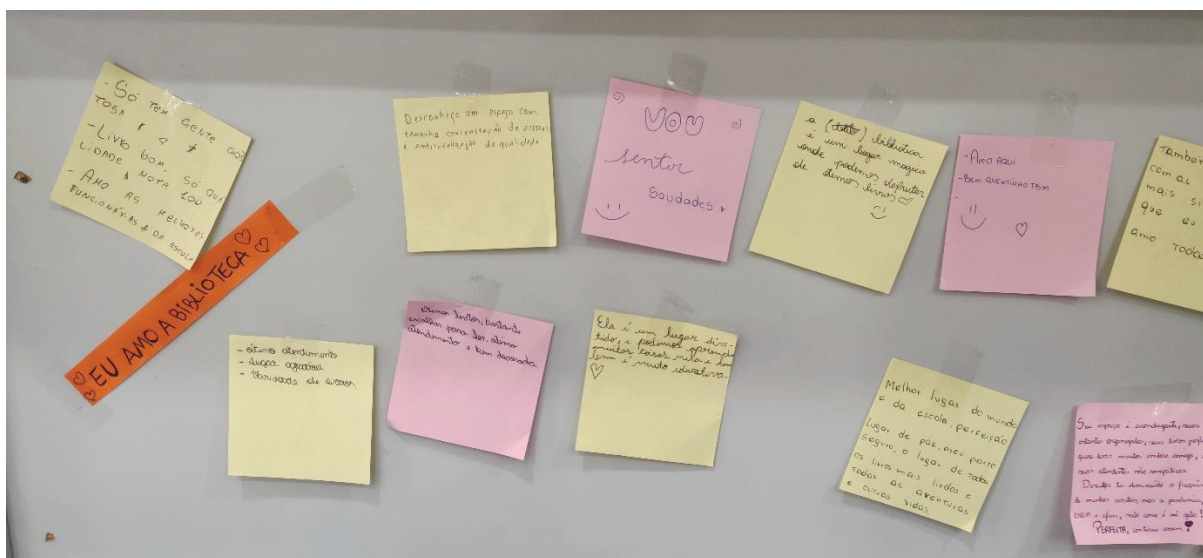 - Só tem gente gos
tosa
- Livro bom, só qua
lidade nota 100
- Amo as melhores
funcionárias da escola
EU AMO A BIBLIOTECA
Desconheço um espaço com
tamanha concentração de pessoas
e ambientalização de qualidade
VOU
sentir
saudades
a biblioteca
é um lugar magico
onde podemos defrutar
de otimos livros
- Amo aqui
- Bem quentinho tbm
Também
com as
mais si
que eu
amo todas
- otimo atendimento
- lugar agradável
- Variedade de livros
livros, bastante
escolhas para ler, otimo
atendimento e bem decorada
Ela é um lugar diver
tido, e podemos aprender
muitas coisas nela e
é muito educativa.
Melhor lugar do mundo
e da escola, perfeição
lugar de paz, meu porto
seguro, o lugar de todos
os livros mais lindos e
todas as aventuras
e outras vidas.
Seu espaço é aconchegante, seus
seus livros
PERFEITA, continue assim!